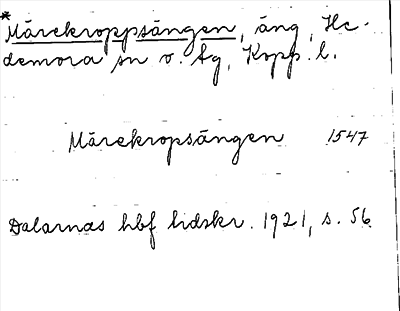 *Märekroppsängen, äng, He-
demora sn o. tg, Kopp. l.
Märekropsängen 1547
Dalarnas hbf tidskr. 1921, s. 56